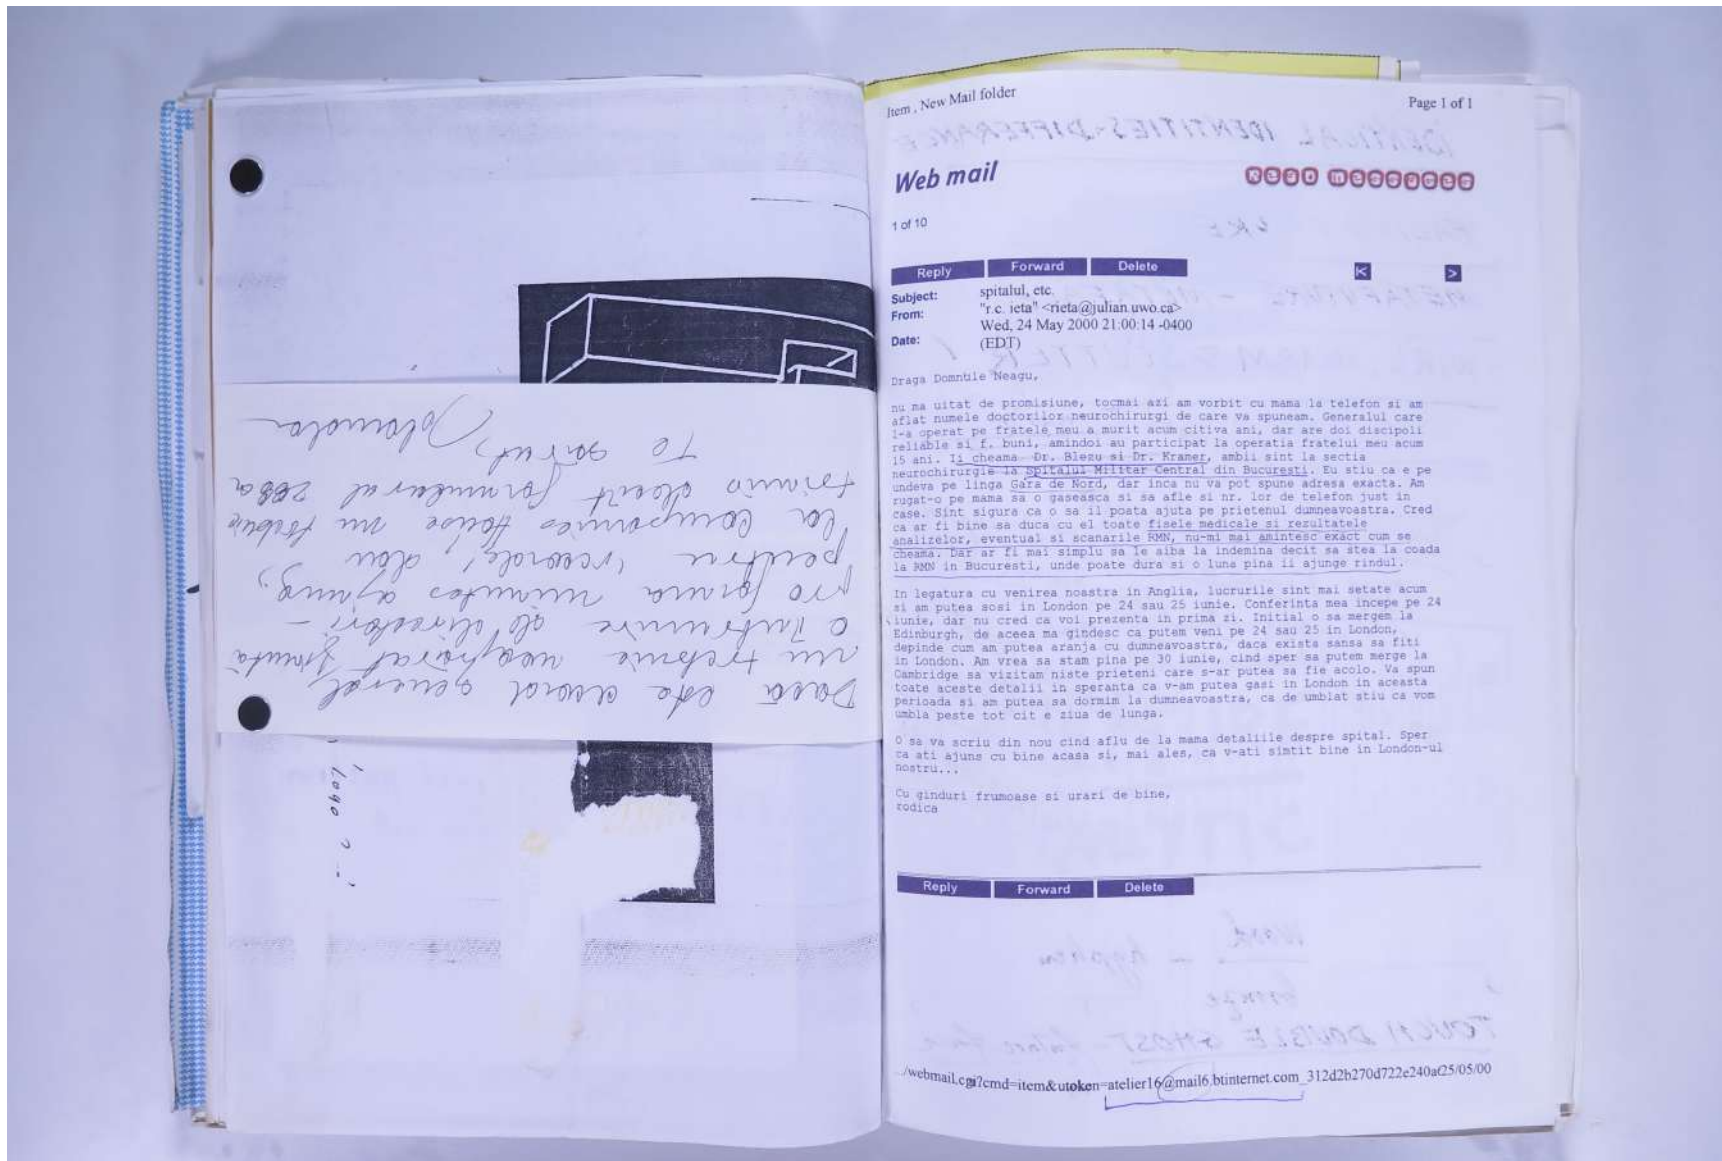 Dacă este acord general,
nu trebuie neapărat ținută
o întrunire de directori –
pro forma minutes ajung,
pentru 'records', dau
la Companies House nu trebuie
trimis decît formularul 288a
sărut,
Logo ?
Item , New Mail folder
Page 1 of 1
IDENTICAL IDENTITIES-DIFFERANCE
Web mail
Read messages
1 of 10
Reply Forward Delete
Subject: spitalul, etc.
From: "r.c. ieta" <rieta@julian.uwo.ca>
Date: Wed, 24 May 2000 21:00:14 -0400
(EDT)
Draga Domnule Neagu,
nu ma uitat de promisiune, tocmai azi am vorbit cu mama la telefon si am
aflat numele doctorilor neurochirurgi de care va spuneam. Generalul care
l-a operat pe fratele meu a murit acum citiva ani, dar are doi discipoli
reliable si f. buni, amindoi au participat la operatia fratelui meu acum
15 ani. Ii cheama Dr. Blezu si Dr. Kramer, ambii sint la sectia
neurochirurgie la Spitalul Militar Central din Bucuresti. Eu stiu ca e pe
undeva pe linga Gara de Nord, dar inca nu va pot spune adresa exacta. Am
rugat-o pe mama sa o gaseasca si sa afle si nr. lor de telefon just in
case. Sint sigura ca o sa il poata ajuta pe prietenul dumneavoastra. Cred
ca ar fi bine sa duca cu el toate fisele medicale si rezultatele
analizelor, eventual si scanarile RMN, nu-mi mai amintesc exact cum se
cheama. Dar ar fi mai simplu sa le aiba la indemina decit sa stea la coada
la RMN in Bucuresti, unde poate dura si o luna pina ii ajunge rindul.
In legatura cu venirea noastra in Anglia, lucrurile sint mai setate acum
si am putea sosi in London pe 24 sau 25 iunie. Conferinta mea incepe pe 24
iunie, dar nu cred ca voi prezenta in prima zi. Initial o sa mergem la
Edinburgh, de aceea ma gindesc ca putem veni pe 24 sau 25 in London,
depinde cum am putea aranja cu dumneavoastra, daca exista sansa sa fiti
in London. Am vrea sa stam pina pe 30 iunie, cind sper sa putem merge la
Cambridge sa vizitam niste prieteni care s-ar putea sa fie acolo. Va spun
toate aceste detalii in speranta ca v-am putea gasi in London in aceasta
perioada si am putea sa dormim la dumneavoastra, ca de umblat stiu ca vom
umbla peste tot cit e ziua de lunga.
O sa va scriu din nou cind aflu de la mama detaliile despre spital. Sper
ca ati ajuns cu bine acasa si, mai ales, ca v-ati simtit bine in London-ul
nostru...
Cu ginduri frumoase si urari de bine,
rodica
Reply Forward Delete
TOUCH DOUBLE GHOST
.../webmail.cgi?cmd=item&utoken=atelier16@mail6.btinternet.com_312d2b270d722e240a(25/05/00